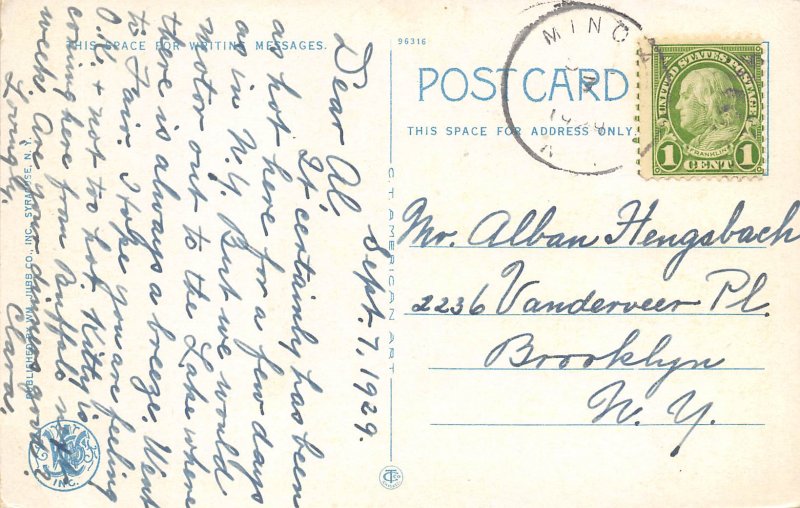 THIS SPACE FOR WRITING MESSAGES.
96316
POSTCARD
THIS SPACE FOR ADDRESS ONLY.
MINOA
N
UNITED STATES POSTAGE
FRANKLIN
1 CENT 1
Sept. 7, 1929.
Dear Al,
It certainly has been
as hot here for a few days
as in N.Y. But we would
motor out to the Lake where
there is always a breeze. Went
to Fair. Hope you are feeling
O.K. & not too hot. Kitty is
coming here from Buffalo
week. Are you
good?
Lovingly,
Clara.
Mr. Alban Hengsbach
2236 Vanderveer Pl.
Brooklyn
N. Y.
PUBLISHED BY WM. JUBB CO., INC., SYRACUSE, N. Y.
C.T. AMERICAN ART
INC.